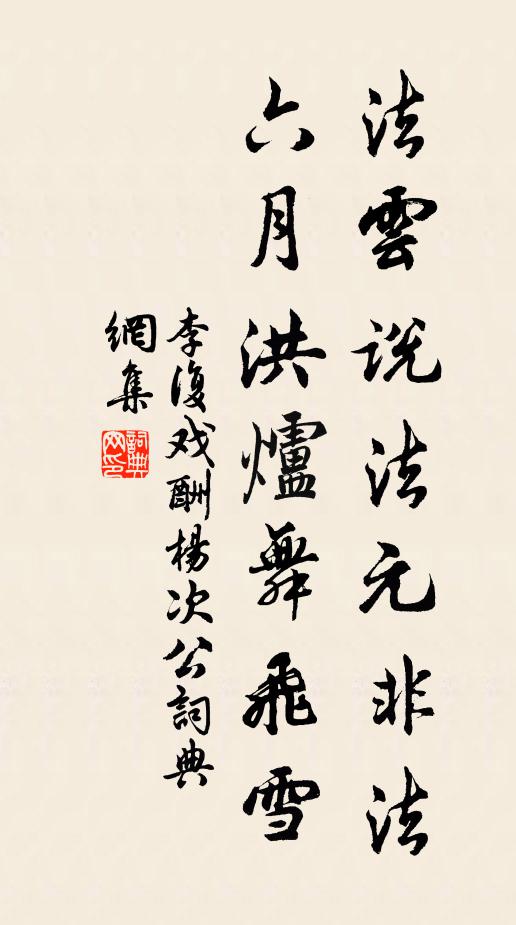 法雲説法元非法
六月洪爐舞飛雪
李復戏酬楊次公詞典
網集
詞典網印